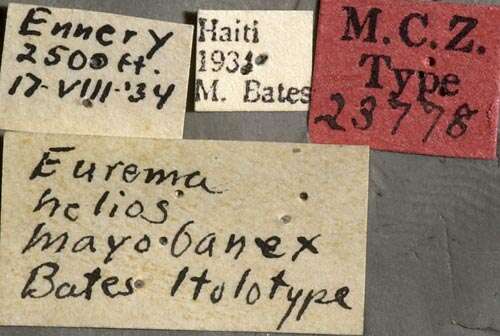 Ennery
2500 ft.
17-VIII-'34
Haiti
1934
M. Bates
M.C.Z.
Type
23778
Eurema
helios
mayobanex
Bates Holotype